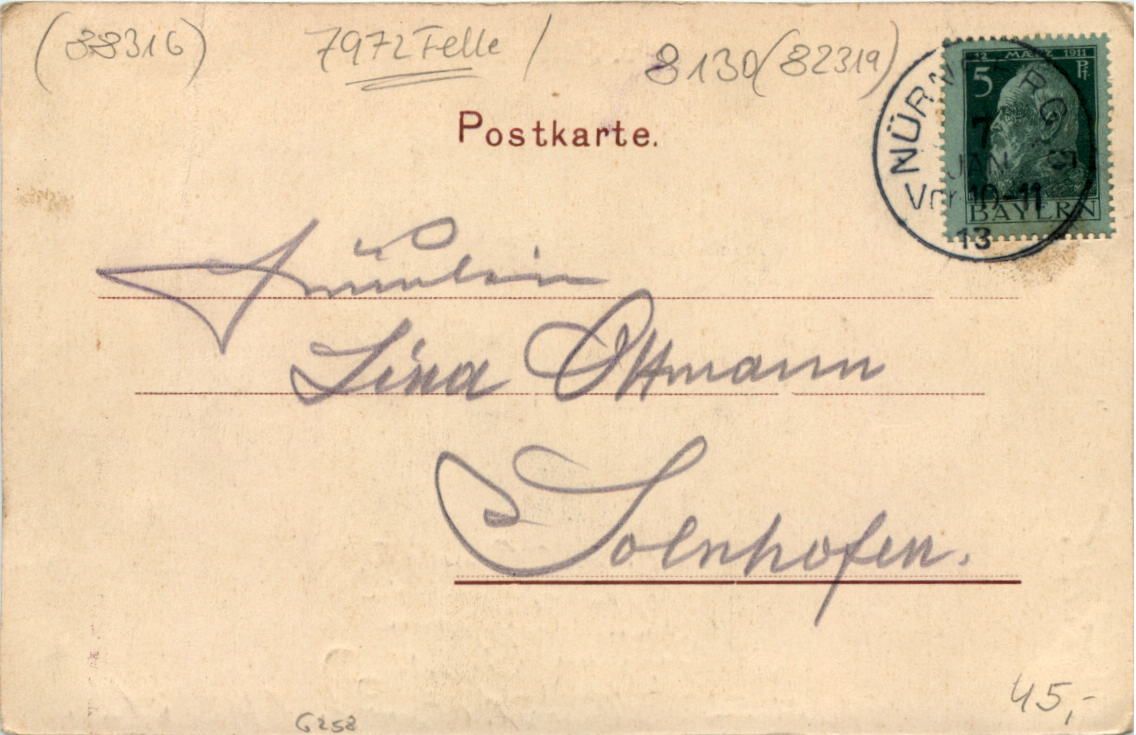 (88316) 7972 Felle / 8130 (82319)
Postkarte.
12 MÄRZ 1911
5 Pf
BAYERN
NÜRNBERG
7
JAN
Vor 10-11
13
Fräulein
Lina Ottmann
Solnhofen.
45,-
6258